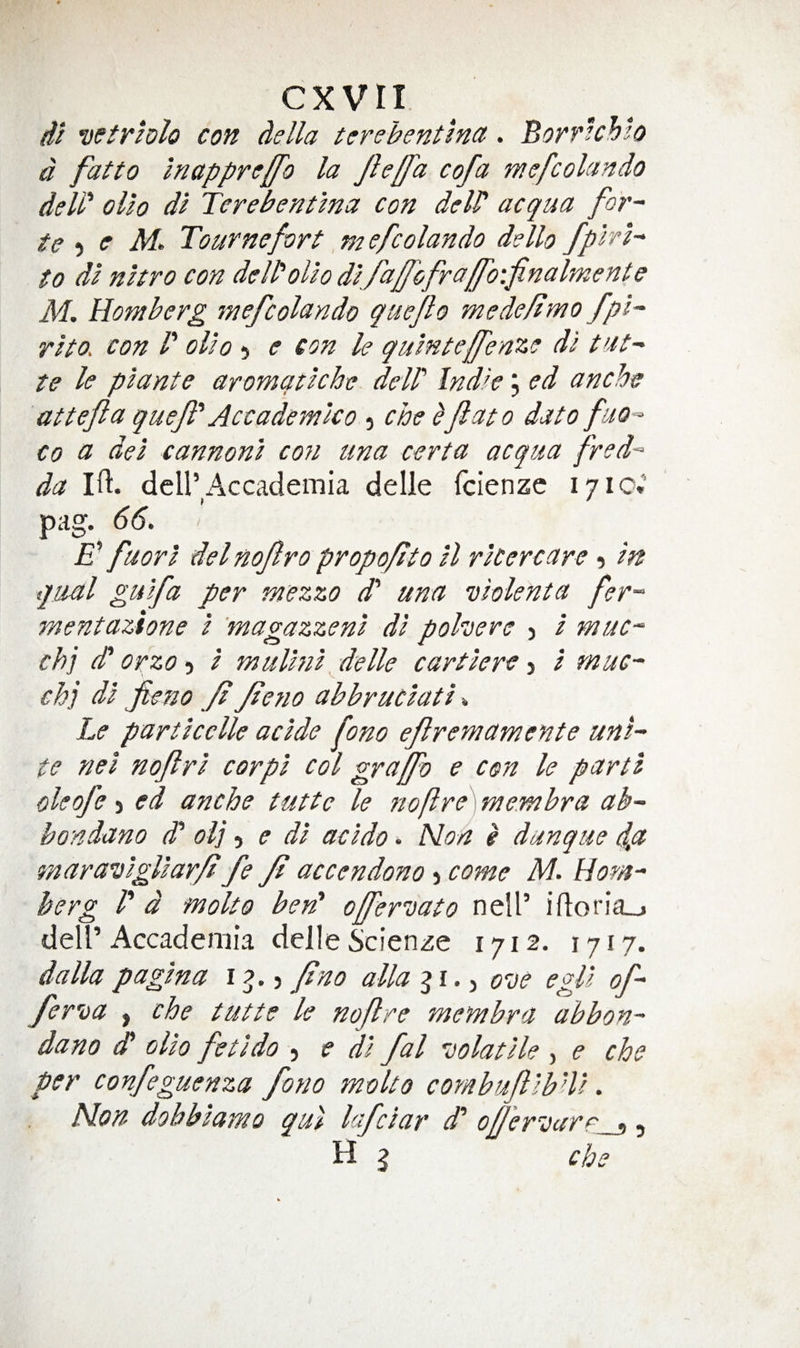 CXVII
di vetriolo con della terebentina . Borrichio
à fatto inappreſſo la ſteſſa coſa meſcolando
dell' olio di Terebentina con dell' acqua for-
te , e M. Tournefort meſcolando dello ſpiri-
to di nitro con dell'olio di ſaſſofraſſo:finalmente
M. Homberg meſcolando queſto medeſimo ſpi-
rito. con l' olio , e con le quinteſſenze di tut-
te le piante aromatiche dell' Indie ; ed anche
atteſta queſt' Accademico , che è ſtato dato fuo-
co a dei cannoni con una certa acqua fred-
da Iſt. dell'Accademia delle ſcienze 1710.
pag. 66.
E' fuori del noſtro propoſito il ricercare , in
qual guiſa per mezzo d' una violenta fer-
mentazione i magazzeni di polvere , i muc-
chj d' orzo , i mulini delle cartiere , i muc-
chj di fieno ſi ſieno abbruciati .
Le particelle acide ſono eſtremamente uni-
te nei noſtri corpi col graſſo e con le parti
oleoſe , ed anche tutte le noſtre membra ab-
bondano d' olj , e di acido . Non è dunque da
maravigliarſi ſe ſi accendono , come M. Hom-
berg l' à molto ben' oſſervato nell' iſtoria
dell' Accademia delle Scienze 1712. 1717.
dalla pagina 13. , ſino alla 31. , ove egli oſ-
ſerva , che tutte le noſtre membra abbon-
dano d' olio fetido , e di ſal volatile , e che
per conſeguenza ſono molto combuſtibili .
Non dobbiamo quì laſciar d' oſſervare ,
H 3 che